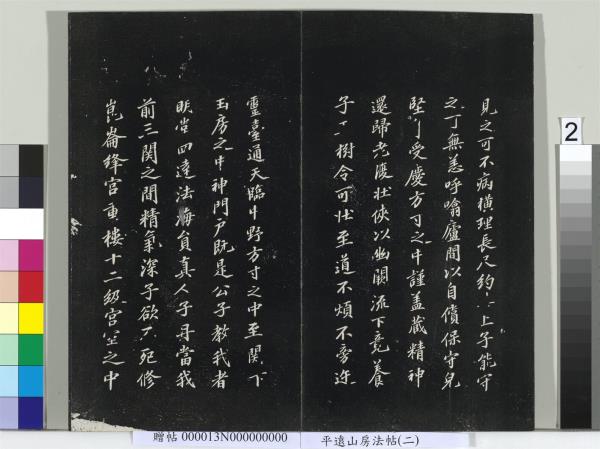 見之可不病橫理長尺約其上子能守
之可無恙呼噏廬間以自償保守兒
堅身受慶方寸之中謹蓋藏精神
還歸老復壯俠以幽闕流下竟養
子玉樹令可壯至道不煩不旁迕
靈臺通天臨中野方寸之中至關下
玉房之中神門戶既是公子教我者
明堂四達法海員真人子丹當我
前三関之間精氣深子欲不死修
崑崙絳宮重樓十二級宮室之中
2
贈帖 000013N000000000
平遠山房法帖(二)